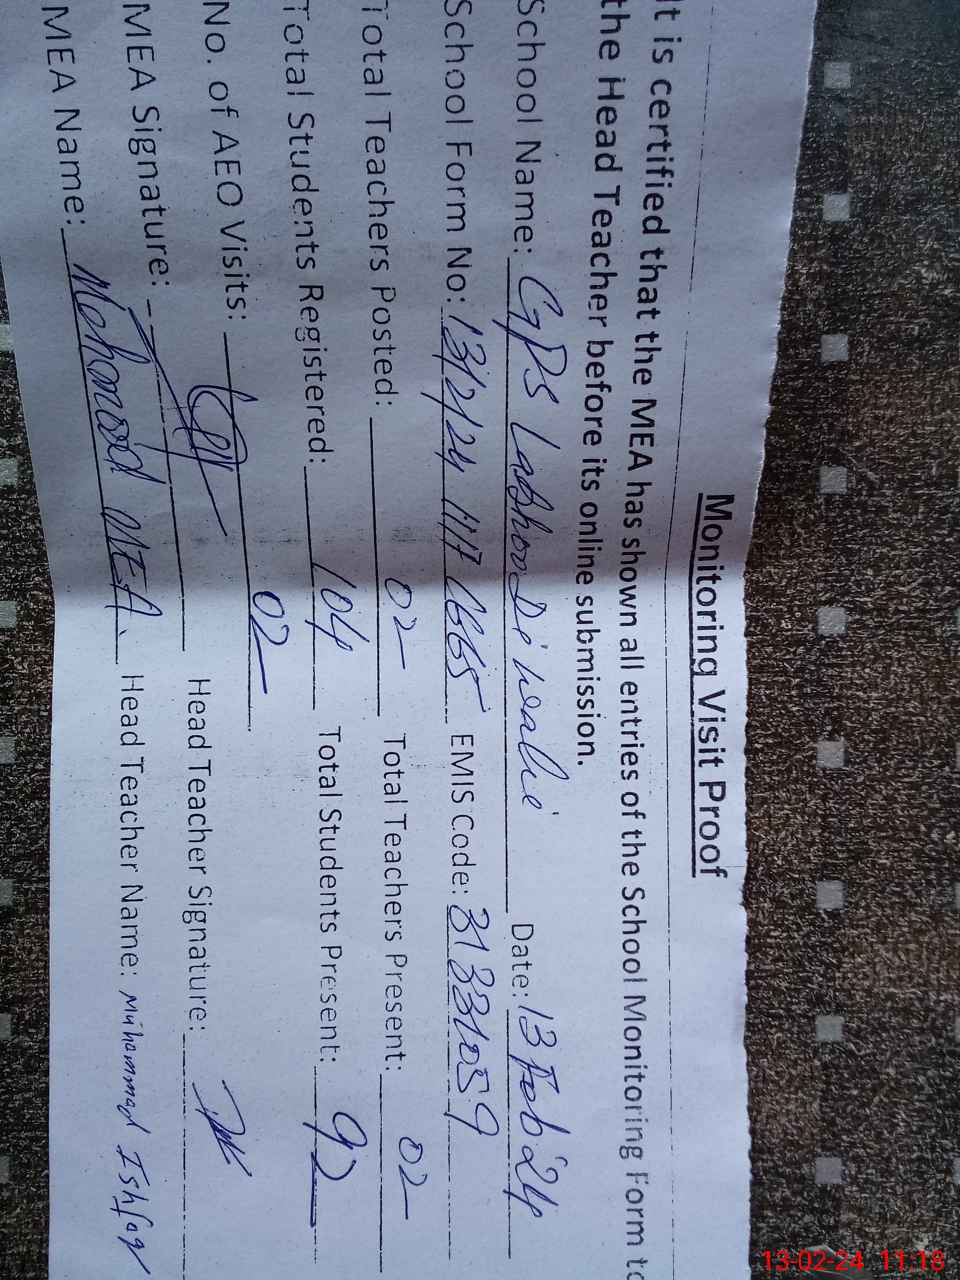 Monitoring Visit Proof
It is certified that the MEA has shown all entries of the School Monitoring Form to
the Head Teacher before its online submission.
School Name: GPS Date: 13 Feb 24
School Form No: 13/2/24 EMIS Code: 31331059
Total Teachers Posted: 02 Total Teachers Present: 02
Total Students Registered: 104 Total Students Present: 92
No. of AEO Visits: 02
MEA Signature: Head Teacher Signature:
MEA Name: MEA. Head Teacher Name: Muhammad Ishfaq
13-02-24 11:18